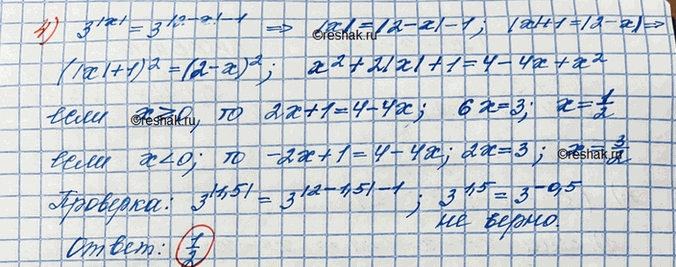 4) 3^|x| = 3^|2-x|-1 ⇒ |x| = |2-x| - 1; |x|+1 = |2-x| ⇒
©reshak.ru ©reshak.ru
(|x|+1)² = (2-x)²; x² + 2|x| + 1 = 4 - 4x + x²
если x ≥ 0, то 2x+1 = 4-4x; 6x = 3; x = 1/2
©reshak.ru
если x < 0; то -2x+1 = 4-4x; 2x = 3; x = 3/2
©reshak.ru
Проверка: 3^|1,5| = 3^|2-1,5|-1; 3^1,5 = 3^-0,5
не верно.
Ответ: 1/2